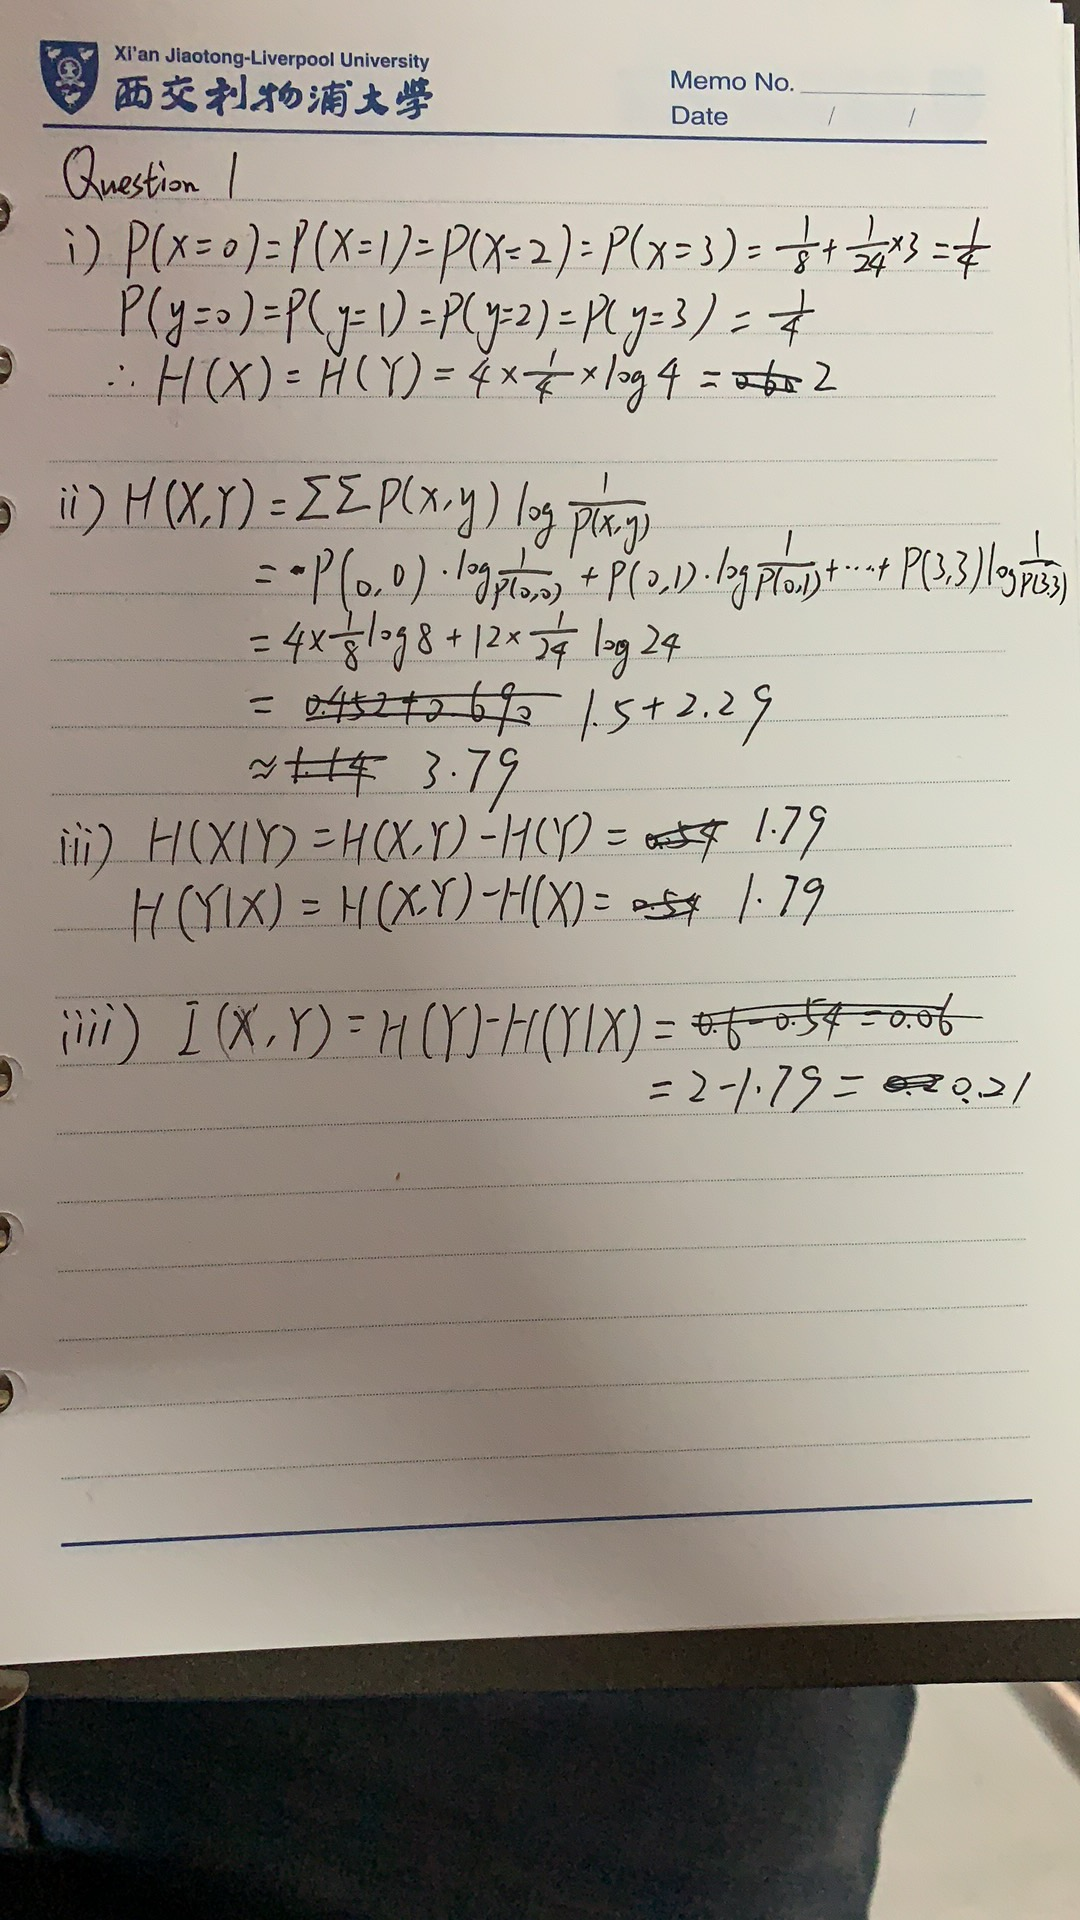 Xi'an Jiaotong-Liverpool University
西交利物浦大學
Memo No.
Date / /
Question 1
i) P(x=0)=P(X=1)=P(X=2)=P(x=3)=1/8+1/24×3=1/4
P(y=0)=P(y=1)=P(y=2)=P(y=3)=1/4
∴ H(X)=H(Y)=4×1/4×log4= 2
ii) H(X,Y)=ΣΣP(x,y) log 1/P(x,y)
=P(0,0)·log 1/P(0,0) + P(0,1)·log 1/P(0,1) +···+ P(3,3) log 1/P(3,3)
=4×1/8 log8+12×1/24 log24
= 0.452+0.690 1.5+2.29
≈ 1.14 3.79
iii) H(X|Y)=H(X,Y)-H(Y)= 0.54 1.79
H(Y|X)=H(X,Y)-H(X)= 0.54 1.79
iiii) I(X,Y)=H(Y)-H(Y|X)= 0.6-0.54=0.06
=2-1.79= 0.21